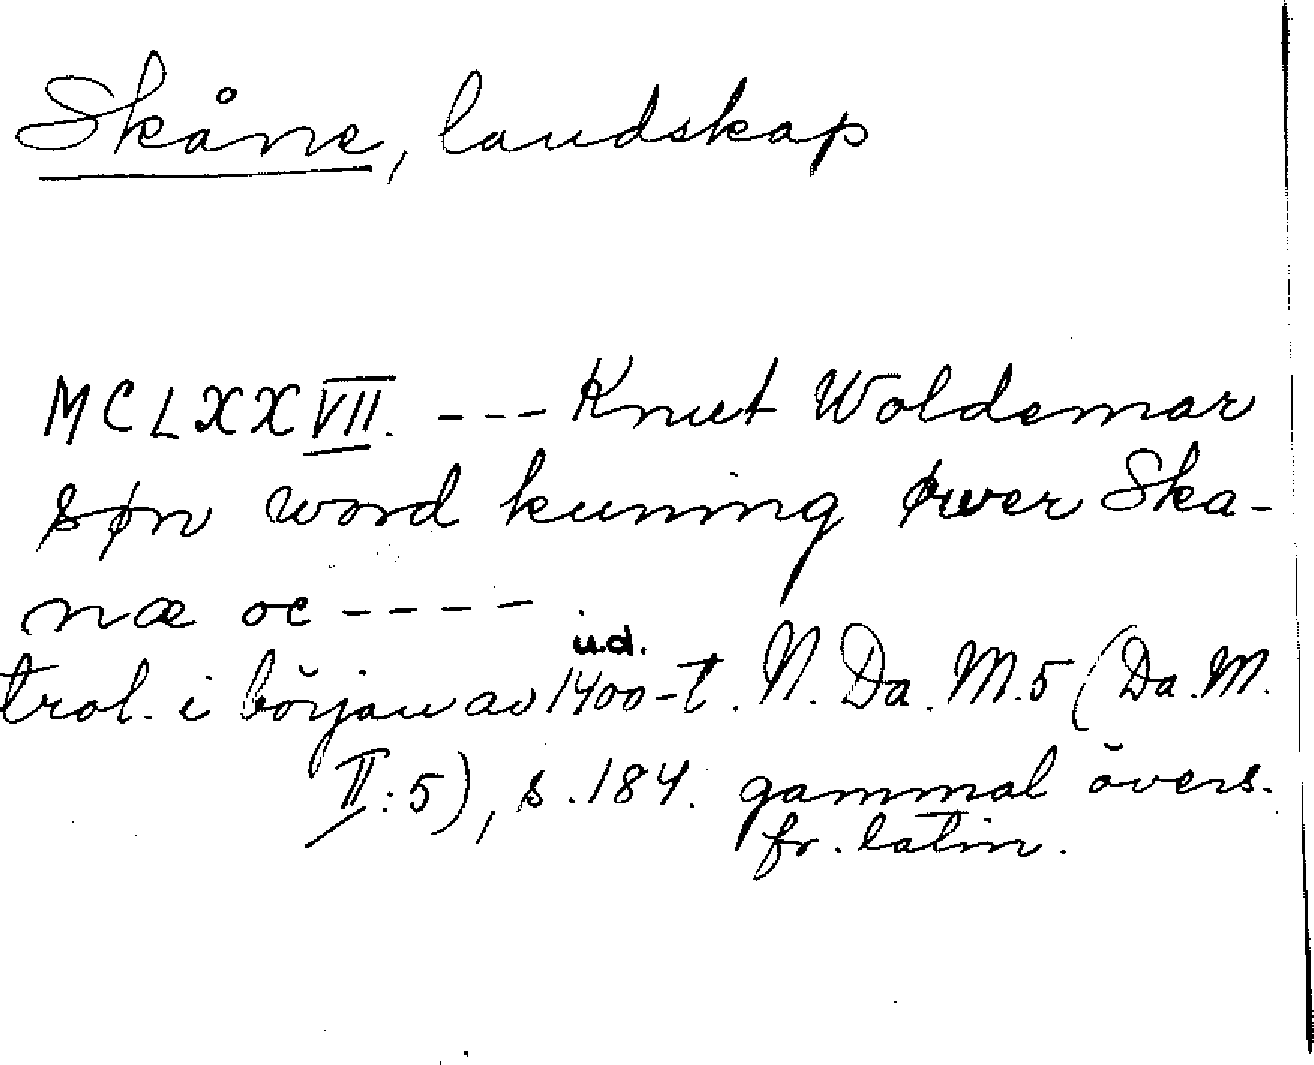 Skåne, landskap
MCLXXVII. --- Knut Woldemar
søn word kuning øwer Ska-
næ oc ----.
u.d.
trol. i början av 1400-t. N. Da. M. 5 (Da. M.
II:5), s. 184. gammal övers.
fr. latin.